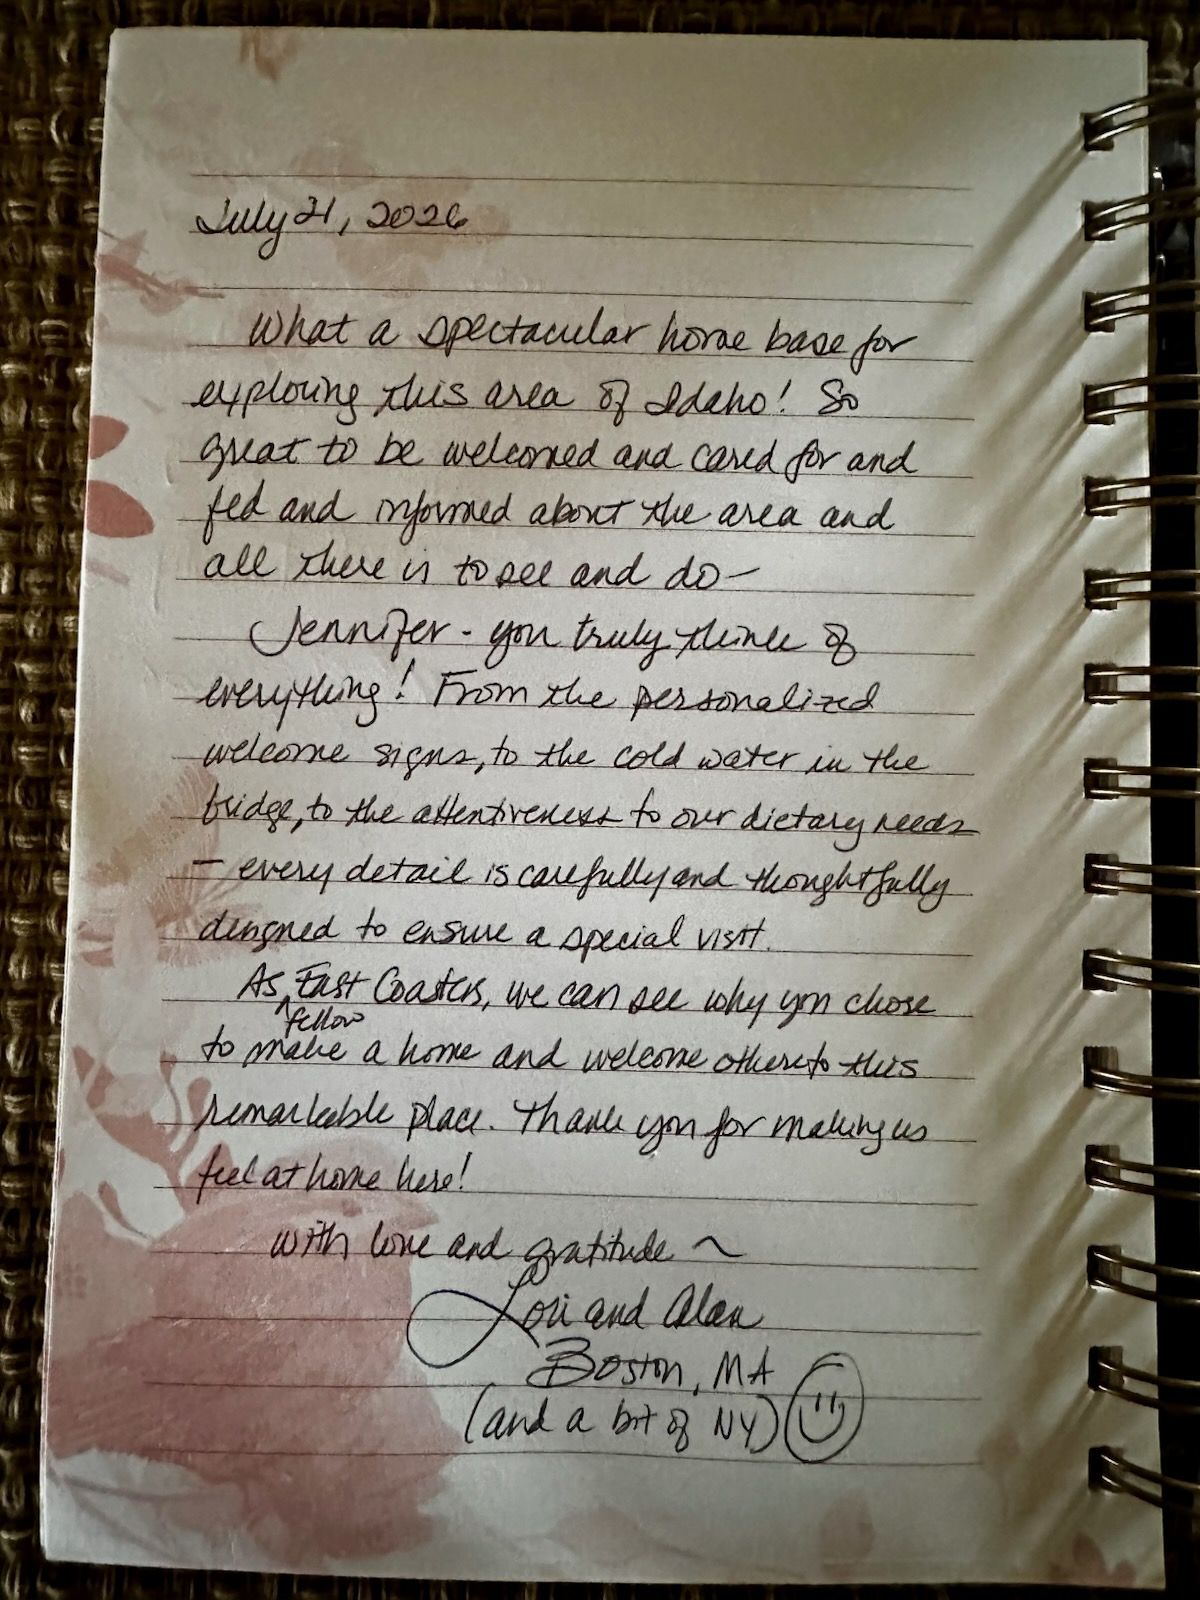 July 21, 2026
What a spectacular home base for
exploring this area of Idaho! So
great to be welcomed and cared for and
fed and informed about the area and
all there is to see and do—
Jennifer - you truly think of
everything! From the personalized
welcome signs, to the cold water in the
fridge, to the attentiveness to our dietary needs
— every detail is carefully and thoughtfully
designed to ensure a special visit.
As ^ East Coasters, we can see why you chose
fellow
to make a home and welcome others to this
remarkable place. Thank you for making us
feel at home here!
With love and gratitude ~
Lori and Alan
Boston, MA
(and a bit of NY) ☺